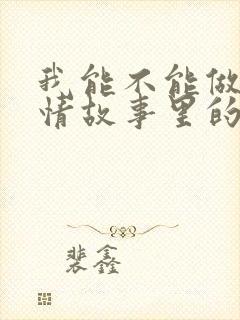 我能不能做
情故事里的
裴鑫